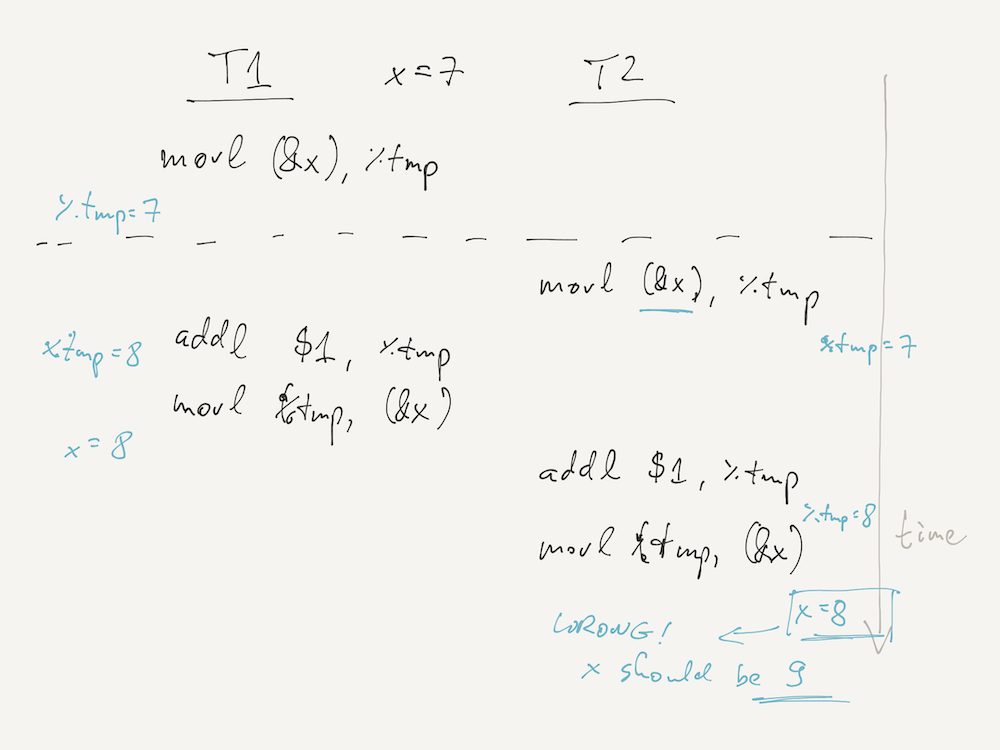 T1 x=7 T2
movl (&x), %tmp
%tmp=7
movl (&x), %tmp
%tmp=7
addl $1, %tmp
%tmp=8
movl %tmp, (&x)
x=8
addl $1, %tmp
%tmp=8
time
movl %tmp, (&x)
x=8
WRONG!
x should be 9